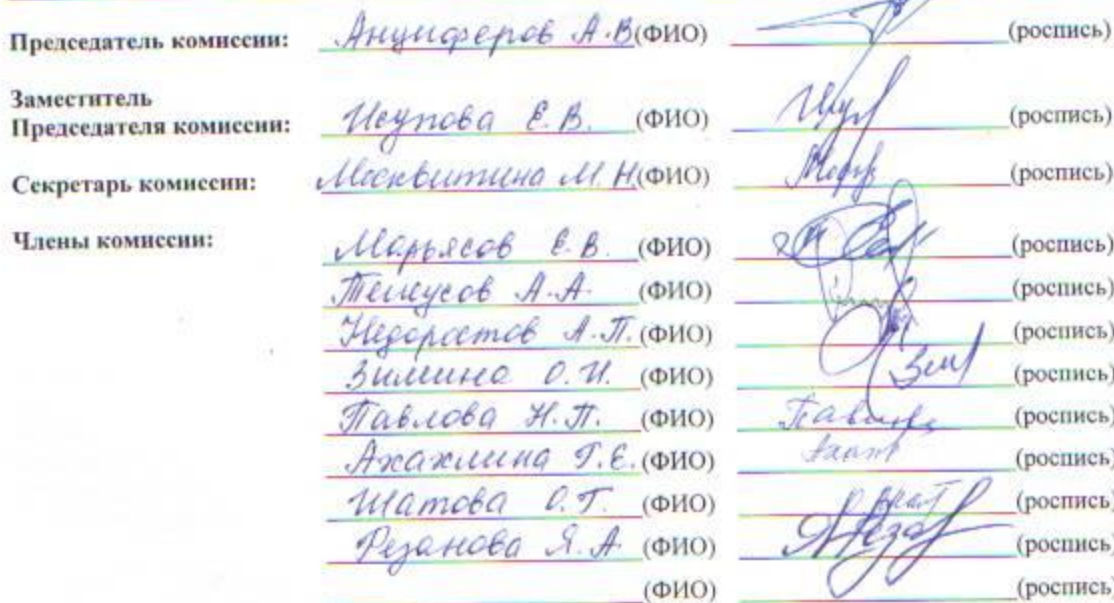 Председатель комиссии: Анциферов А.В (ФИО) (роспись)
Заместитель
Председателя комиссии: Исупова Е.В. (ФИО) (роспись)
Секретарь комиссии: Москвитина М.Н (ФИО) (роспись)
Члены комиссии: Марьясов Е.В. (ФИО) (роспись)
А.А. (ФИО) (роспись)
Недоростов А.П. (ФИО) (роспись)
Зимина О.И. (ФИО) Зим (роспись)
Павлова Н.П. (ФИО) (роспись)
Г.Е. (ФИО) (роспись)
Шатова О.Г. (ФИО) (роспись)
Резанова Я.А (ФИО) (роспись)
(ФИО) (роспись)